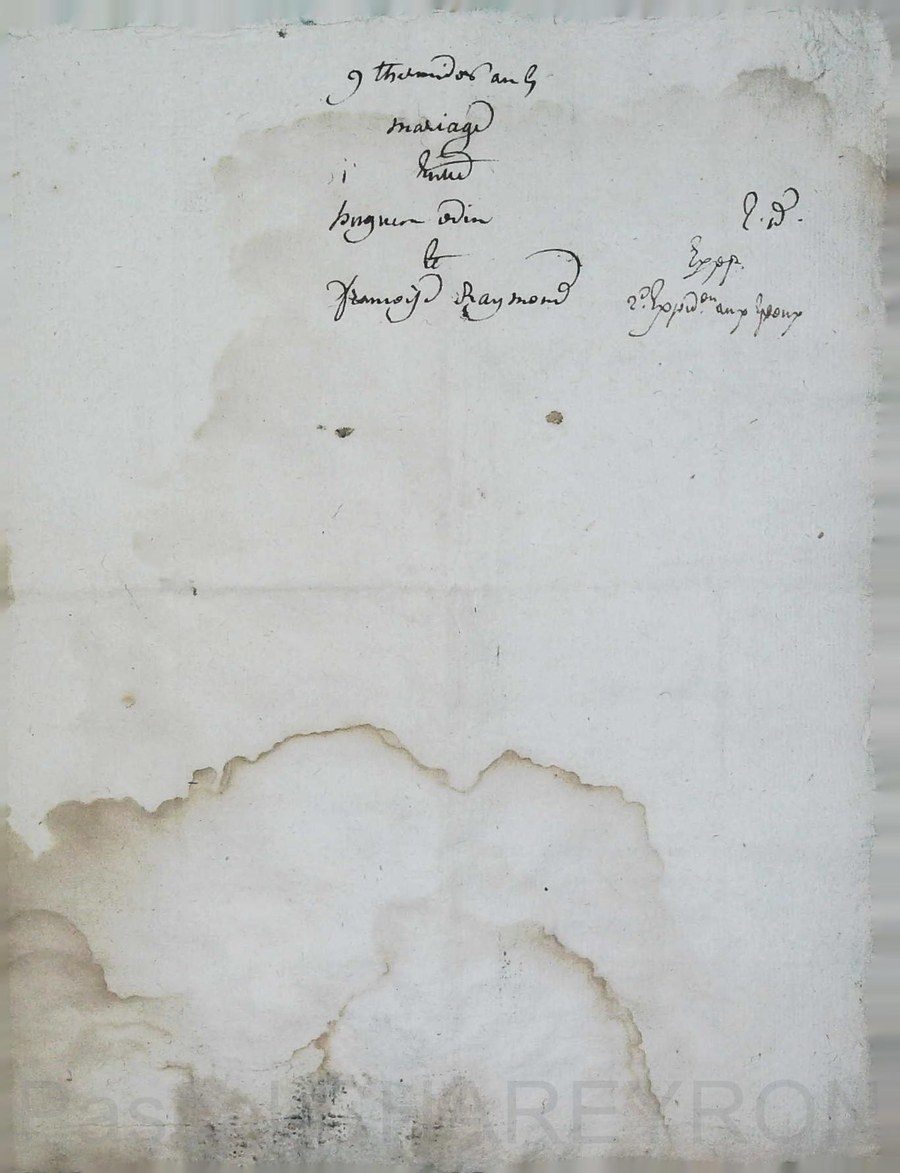 9 thermidor an 5
mariage
Entre
hugues odin
Et
françoise Raymond
Expp.
2e. Exppd.on aux Epoux
Pascal CHAREYRON